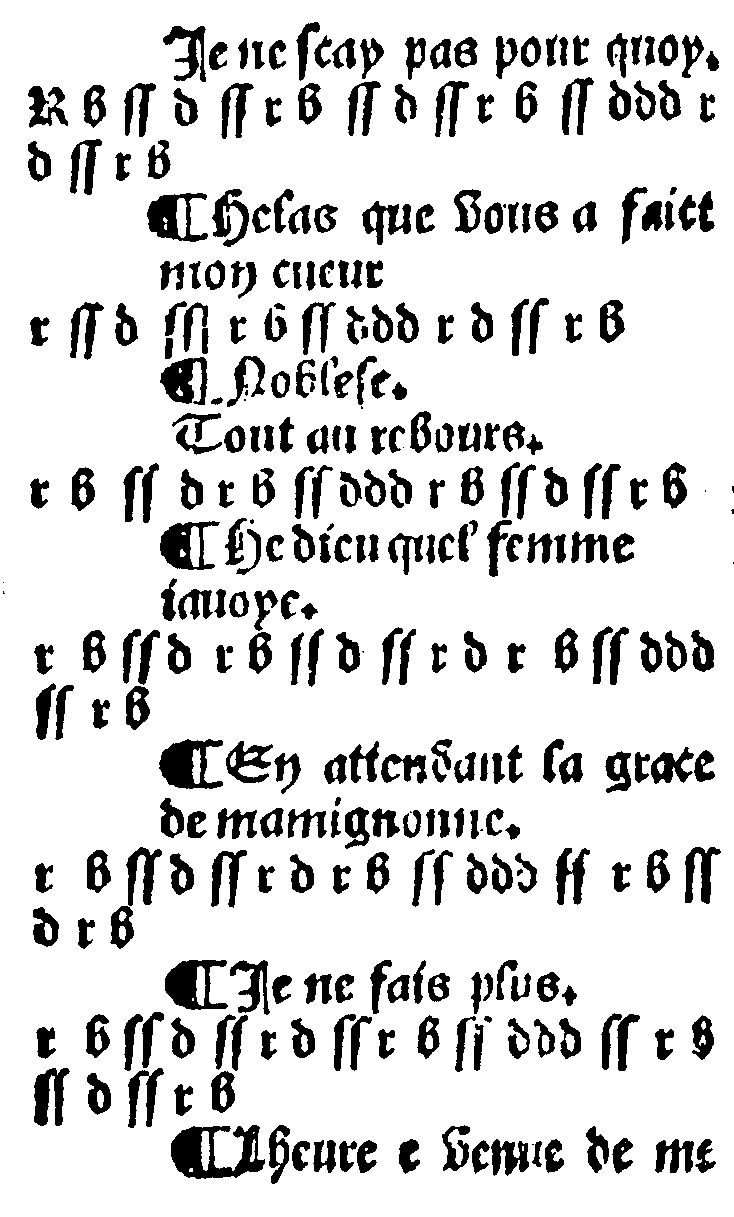 Je ne scay pas pour quoy.
R b ſſ d ſſ r b ſſ d ſſ r b ſſ ddd r
d ſſ r b
¶ Helas que vous a faict
mon cueur
r ſſ d ſſſ r b ſſ ddd r d ſſ r b
¶ Noblese.
Tout au rebours.
r b ſſ d r b ſſ ddd r b ſſ d ſſ r b
¶ He dieu quel' femme
iauoye.
r b ſſ d r b ſſ d ſſ r d r b ſſ ddd
ſſ r b
¶ En attendant la grace
de mamignonne.
r b ſſ d ſſ r d r b ſſ ddd ſſ r b ſſ
d r b
¶ Je ne fais plus.
r b ſſ d ſſ r d ſſ r b ſſ ddd ſſ r b
ſſ d ſſ r b
¶ Lheure e venue de me